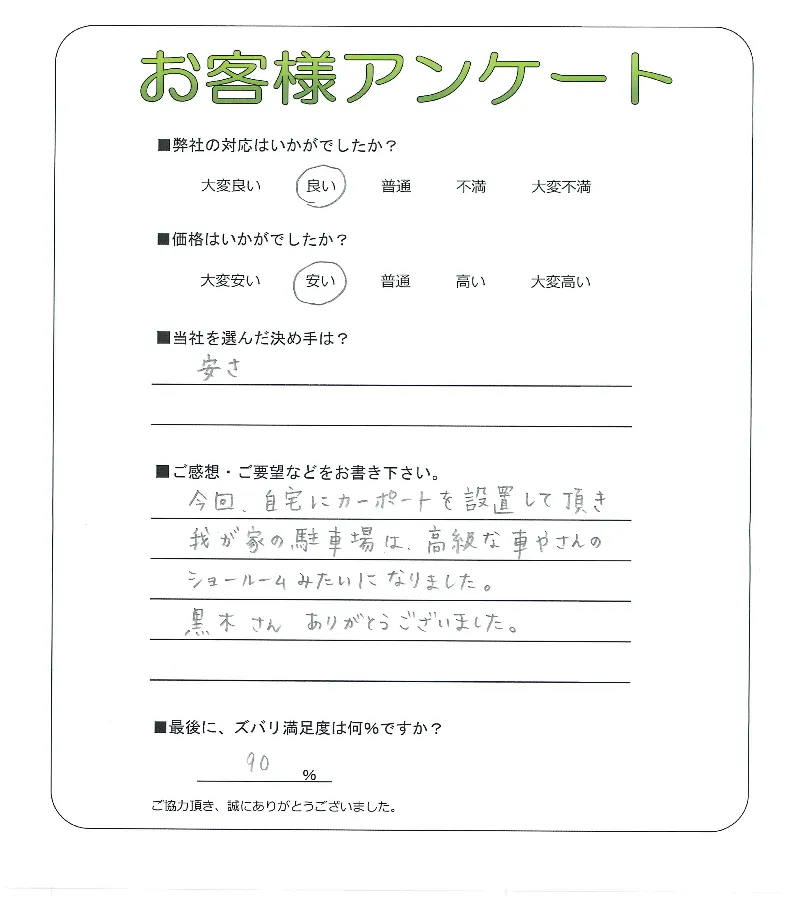 お客様アンケート
■弊社の対応はいかがでしたか？
大変良い 良い 普通 不満 大変不満
■価格はいかがでしたか？
大変安い 安い 普通 高い 大変高い
■当社を選んだ決め手は？
安さ
■ご感想・ご要望などをお書き下さい。
今回、自宅にカーポートを設置して頂き
我が家の駐車場は、高級な車やさんの
ショールームみたいになりました。
黒木さん ありがとうございました。
■最後に、ズバリ満足度は何%ですか？
90 %
ご協力頂き、誠にありがとうございました。